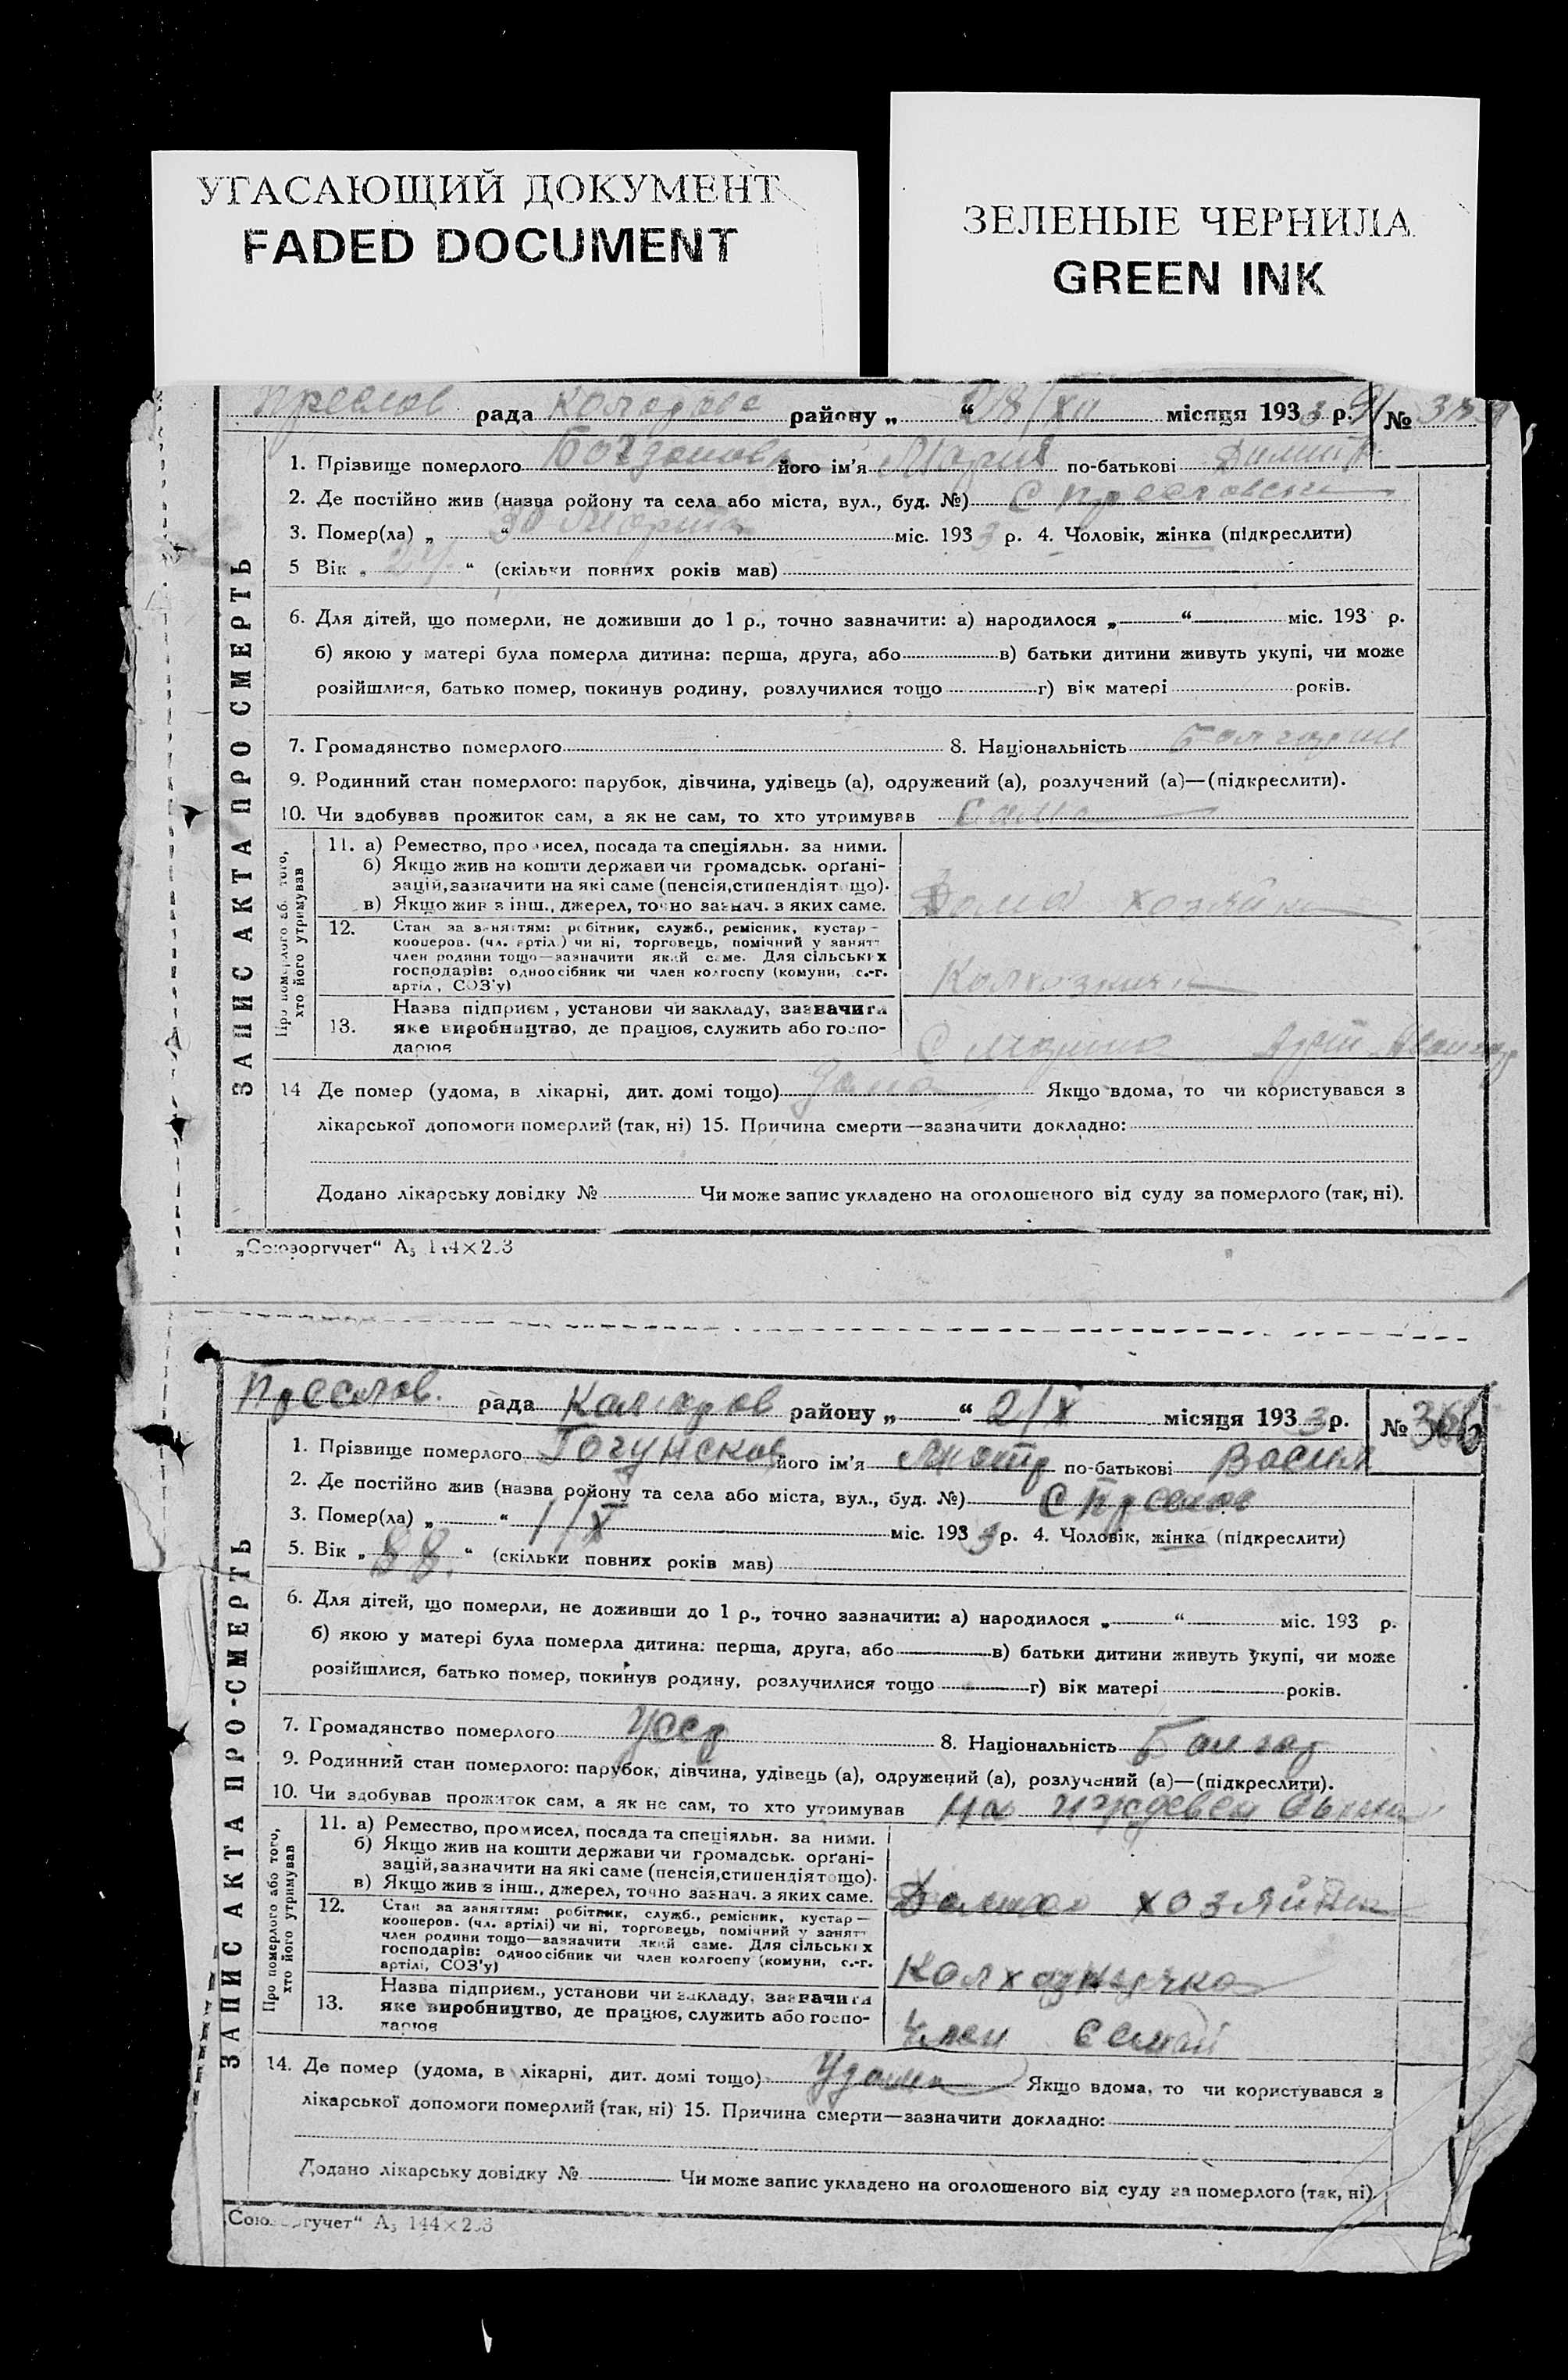 УГАСАЮЩИЙ ДОКУМЕНТ
FADED DOCUMENT
ЗЕЛЕНЫЕ ЧЕРНИЛА
GREEN INK
Преслов рада района „ “ 28/XII місяця 1933 р. №
ЗАПИС АКТА ПРО СМЕРТЬ
1. Прізвище померлого його ім'я Мария по-батькові Димитр
2. Де постійно жив (назва ройону та села або міста, вул., буд. №) С
3. Помер(ла) „ 30 “ Марта міс. 1933 р. 4. Чоловік, жінка (підкреслити)
5 Вік „ “ (скільки повних років мав)
6. Для дітей, що померли, не доживши до 1 р., точно зазначити: а) народилося „ “ міс. 193 р.
б) якою у матері була померла дитина: перша, друга, або в) батьки дитини живуть укупі, чи може
розійшлися, батько помер, покинув родину, розлучилися тощо г) вік матері років.
7. Громадянство померлого 8. Національність
9. Родинний стан померлого: парубок, дівчина, удівець (а), одружений (а), розлучений (а)—(підкреслити).
10. Чи здобував прожиток сам, а як не сам, то хто утримував сама
Про померлого або того, хто його утримував
11. а) Ремество, промисел, посада та спеціяльн. за ними.
б) Якщо жив на кошти держави чи громадськ. орґані-
зацій, зазначити на які саме (пенсія, стипендія тощо).
в) Якщо жив з інш., джерел, точно зазнач. з яких саме.
Дома хозяйка
12. Стан за заняттям: робітник, служб., ремісник, кустар—
кооперов. (чл. артілі) чи ні, торговець, помічний у занятт
член родини тощо—зазначити який саме. Для сільських
господарів: одноосібник чи член колгоспу (комуни, с.-г.
артіл, СОЗ'у)
Колхозница
13. Назва підприєм, установи чи закладу, зазначити
яке виробництво, де працює, служить або госпо-
дарює
14 Де помер (удома, в лікарні, дит. домі тощо) Удома Якщо вдома, то чи користувався з
лікарської допомоги померлий (так, ні) 15. Причина смерти—зазначити докладно:
Додано лікарську довідку № Чи може запис укладено на оголошеного від суду за померлого (так, ні).
„Союзоргучет“ А₅ 144×203
Преслов. рада района „ “ 2/X місяця 1933 р. № 366
ЗАПИС АКТА ПРО-СМЕРТЬ
1. Прізвище померлого його ім'я по-батькові Васил
2. Де постійно жив (назва ройону та села або міста, вул., буд. №) С Преслов
3. Помер(ла) „ “ 1/X міс. 1933 р. 4. Чоловік, жінка (підкреслити)
5. Вік „ 88. “ (скільки повних років мав)
6. Для дітей, що померли, не доживши до 1 р., точно зазначити: а) народилося „ “ міс. 193 р.
б) якою у матері була померла дитина: перша, друга, або в) батьки дитини живуть укупі, чи може
розійшлися, батько помер, покинув родину, розлучилися тощо г) вік матері років.
7. Громадянство померлого Усср 8. Національність Болгар
9. Родинний стан померлого: парубок, дівчина, удівець (а), одружений (а), розлучений (а)—(підкреслити).
10. Чи здобував прожиток сам, а як не сам, то хто утримував на иждевен сына
Про померлого або того, хто його утримував
11. а) Ремество, промисел, посада та спеціяльн. за ними.
б) Якщо жив на кошти держави чи громадськ. орґані-
зацій, зазначити на які саме (пенсія, стипендія тощо).
в) Якщо жив з інш., джерел, точно зазнач. з яких саме.
хозяйка
12. Стан за заняттям: робітник, служб., ремісник, кустар—
кооперов. (чл. артілі) чи ні, торговець, помічний у занятт
член родини тощо—зазначити який саме. Для сільських
господарів: одноосібник чи член колгоспу (комуни, с.-г.
артілі, СОЗ'у)
13. Назва підприєм., установи чи закладу, зазначити
яке виробництво, де працює, служить або госпо-
дарює
Член семьи
14. Де помер (удома, в лікарні, дит. домі тощо) Удома Якщо вдома, то чи користувався з
лікарської допомоги померлий (так, ні) 15. Причина смерти—зазначити докладно:
Додано лікарську довідку № Чи може запис укладено на оголошеного від суду за померлого (так, ні).
„Союзоргучет“ А₅ 144×203